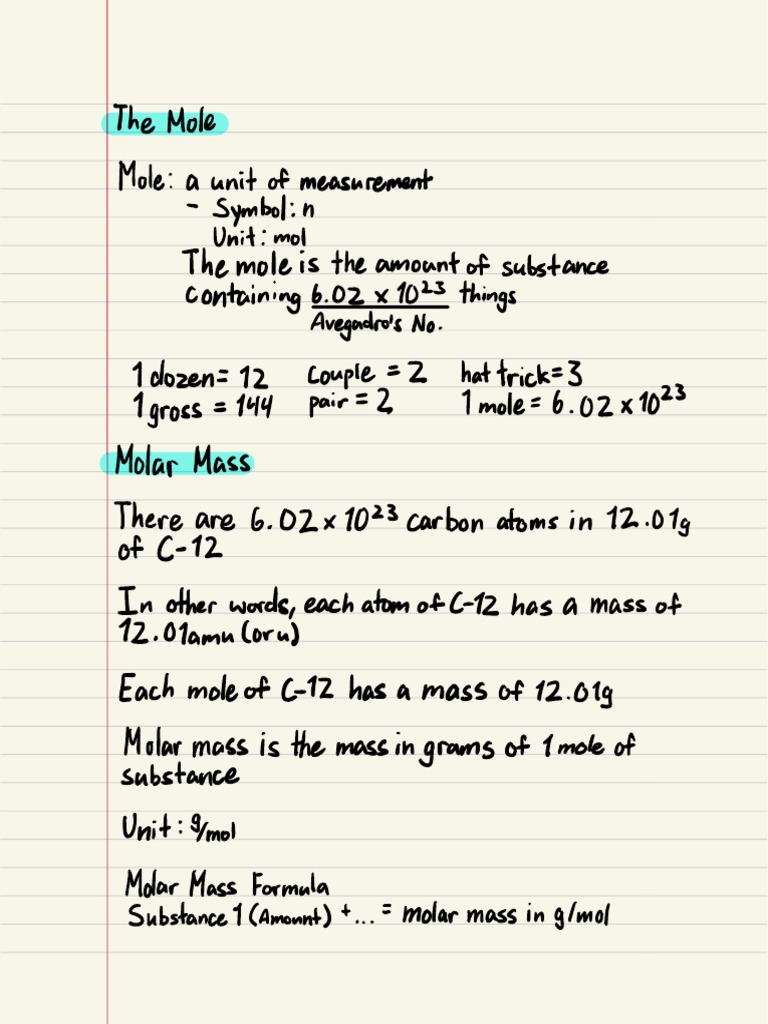 The Mole
Mole: a unit of measurement
- Symbol: n
Unit: mol
The mole is the amount of substance
containing 6.02 x 10²³ things
Avegadro's No.
1 dozen = 12 couple = 2 hat trick = 3
1 gross = 144 pair = 2 1 mole = 6.02 x 10²³
Molar Mass
There are 6.02 x 10²³ carbon atoms in 12.01g
of C-12
In other words, each atom of C-12 has a mass of
12.01amu (or u)
Each mole of C-12 has a mass of 12.01g
Molar mass is the mass in grams of 1 mole of
substance
Unit: g/mol
Molar Mass Formula
Substance 1 (Amount) + ... = molar mass in g/mol